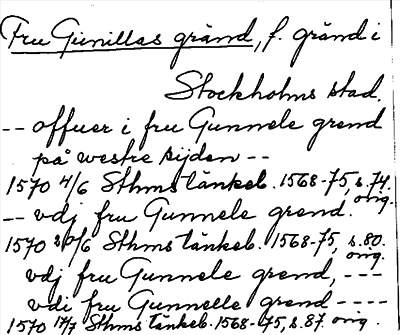 Fru Gunillas gränd, f. gränd i
Stockholms stad.
-- offuer i fru Gunnele grend
på westre sijden --
1570 4/6 Sthms tänkeb. 1568-75, s. 74.
orig.
-- vdj fru Gunnele grend.
1570 20/6 Sthms tänkeb. 1568-75, s. 80.
orig.
vdj fru Gunnele grend, ---
vdi fru Gunnelle grend ----
1570 17/7 Sthms tänkeb. 1568-75, s. 87. orig.